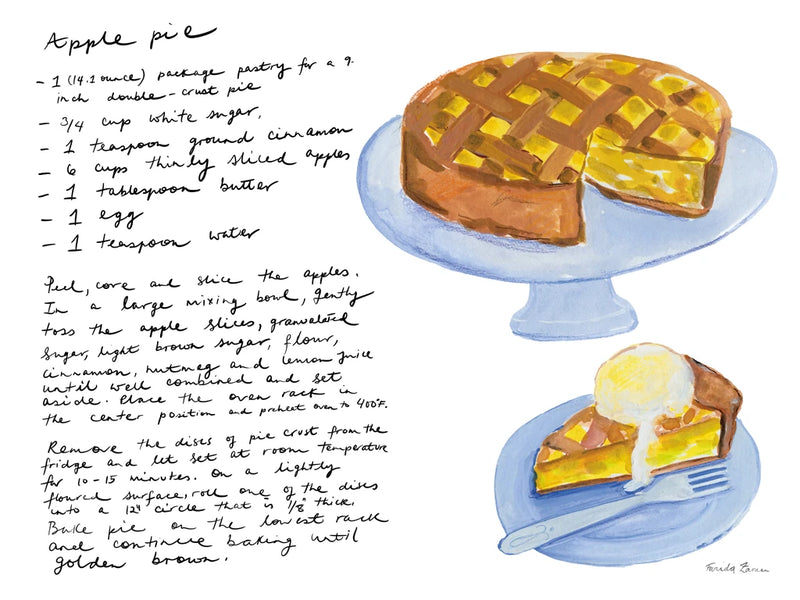 Apple pie
- 1 (14.1 ounce) package pastry for a 9-
inch double-crust pie
- 3/4 cup white sugar,
- 1 teaspoon ground cinnamon
- 6 cups thinly sliced apples
- 1 tablespoon butter
- 1 egg
- 1 teaspoon water
Peel, core and slice the apples.
In a large mixing bowl, gently
toss the apple slices, granulated
sugar, light brown sugar, flour,
cinnamon, nutmeg and lemon juice
until well combined and set
aside. Place the oven rack in
the center position and preheat oven to 400°F.
Remove the discs of pie crust from the
fridge and let set at room temperature
for 10-15 minutes. On a lightly
floured surface, roll one of the discs
into a 12" circle that is 1/8" thick.
Bake pie on the lowest rack
and continue baking until
golden brown.
Farida Zaman